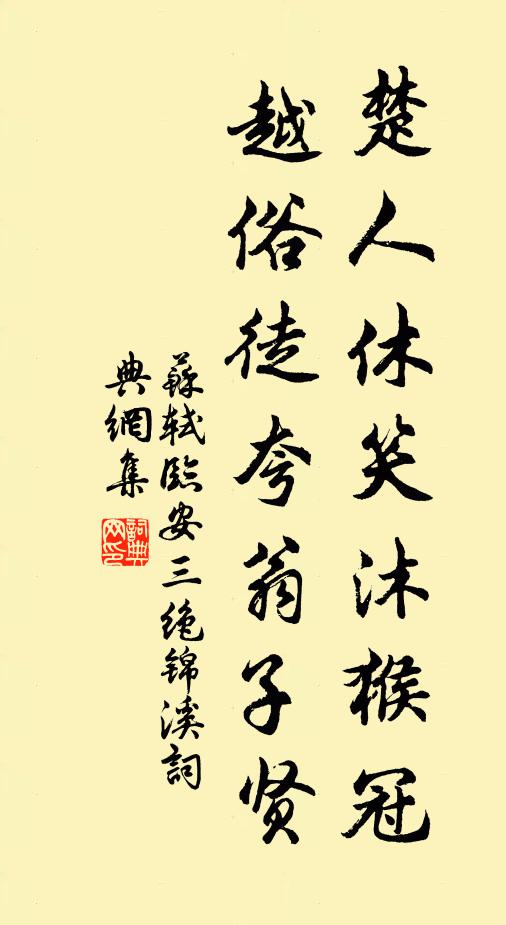 楚人休笑沐猴冠
越俗徒夸翁子贤
蘇軾臨安三绝锦溪詞
典網集
詞典网印